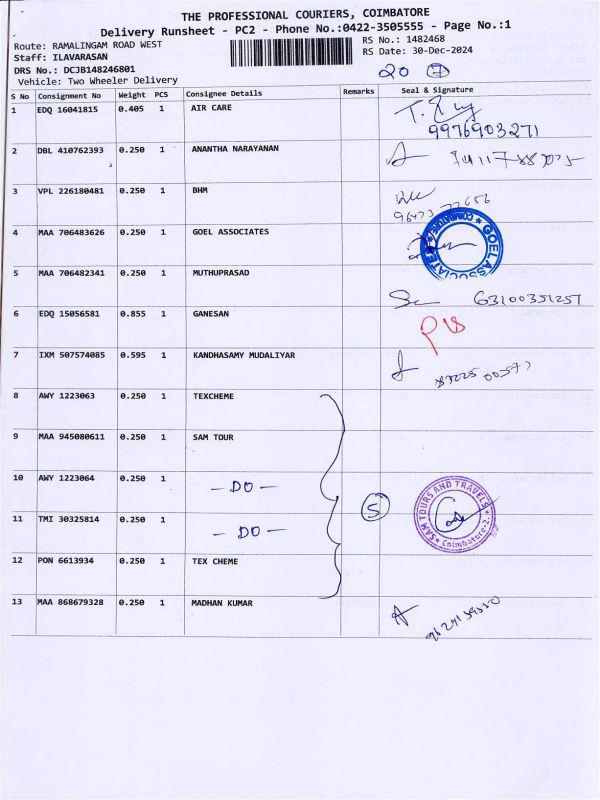 THE PROFESSIONAL COURIERS, COIMBATORE
Delivery Runsheet - PC2 - Phone No.:0422-3505555 - Page No.:1
Route: RAMALINGAM ROAD WEST
RS No.: 1482468
Staff: ILAVARASAN
RS Date: 30-Dec-2024
DRS No.: DCJB148246801
Vehicle: Two Wheeler Delivery
20
S No Consignment No Weight PCS Consignee Details Remarks Seal & Signature
1 EDQ 16041815 0.405 1 AIR CARE
9976903271
2 DBL 410762393 0.250 1 ANANTHA NARAYANAN
3 VPL 226180481 0.250 1 BHM
4 MAA 706483626 0.250 1 GOEL ASSOCIATES
GOEL ASSOCIATES * COIMBATORE *
5 MAA 706482341 0.250 1 MUTHUPRASAD
63100351257
6 EDQ 15056581 0.855 1 GANESAN
7 IXM 507574085 0.595 1 KANDHASAMY MUDALIYAR
8 AWY 1223063 0.250 1 TEXCHEME
9 MAA 945080611 0.250 1 SAM TOUR
10 AWY 1223064 0.250 1 - DO -
5
SAM TOURS AND TRAVELS * Coimbatore-2. *
11 TMI 30325814 0.250 1 - DO -
12 PON 6613934 0.250 1 TEX CHEME
13 MAA 868679328 0.250 1 MADHAN KUMAR